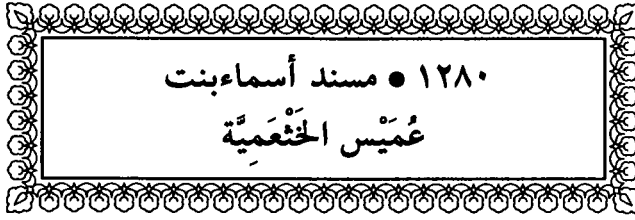 ١٢٨٠ ● مسند أسماءبنت
عُمَيْس الخَثْعَمِيَّة